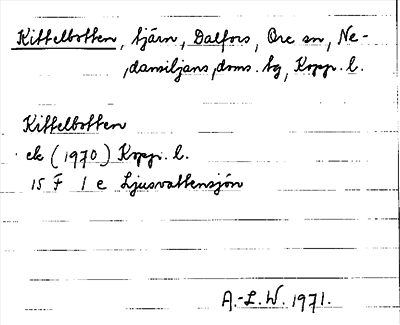 Kittelbotten, tjärn, Dalfors, Ore sn, Ne-
dansiljans doms. tg, Kopp. l.
Kittelbotten
ek (1970) Kopp. l.
15 F 1 e Ljusvattensjön
A.-L.W. 1971.